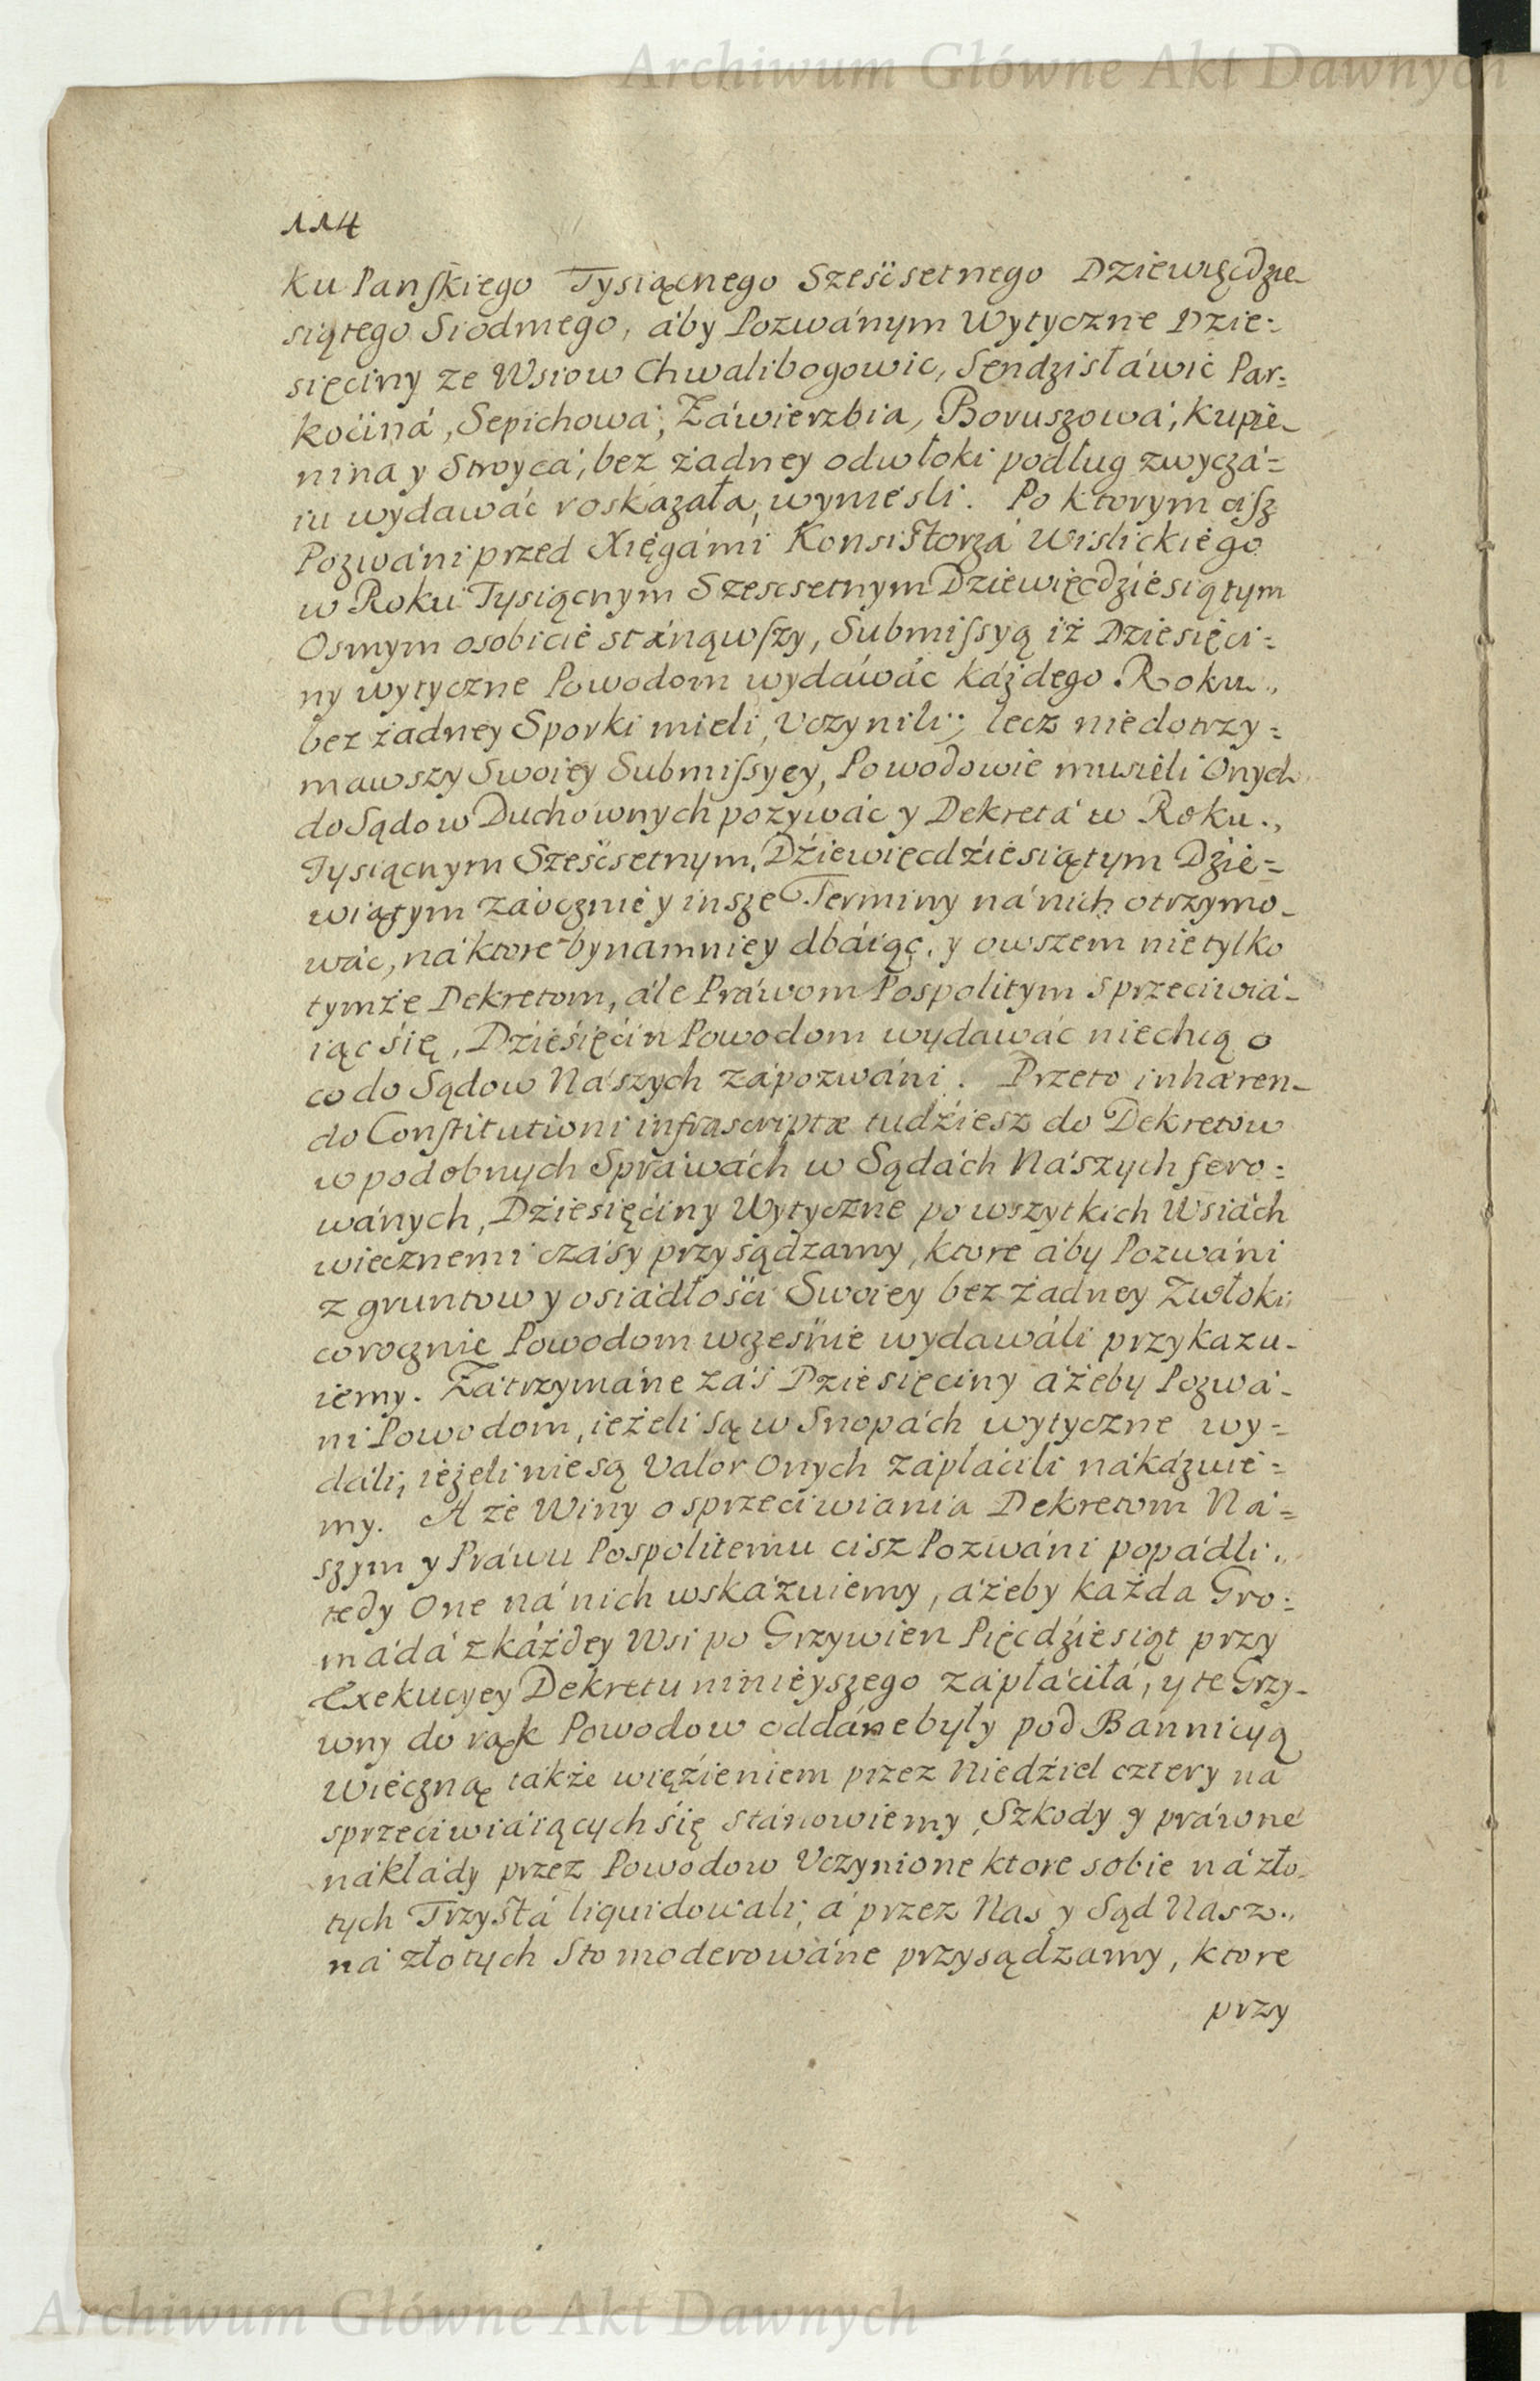 Archiwum Główne Akt Dawnych
114
ku Panſkiego Tysiącnego Sześćsetnego Dziewięćdzie-
siątego Siodmego, áby Pozwánym Wytyczne Dzie=
sięciny ze Wsiow Chwalibogowic, Sędzisłáwic Par=
kocina, Sepichowá, Záwierzbia, Boruszowá, Kupie-
nina y Stroycá, bez żadney odwłoki podług zwyczá=
iu wydawáć roskazała, wyniesli. Po ktorym ciſz
Pozwáni przed Xięgámi Konsiſtorzá Wislickiego
w Roku Tysiącnym Szescsetnym Dziewięćdziesiątym
Osmym osobicie stánąwſzy, Submiſsyą iż Dziesięci=
ny wytyczne Powodom wydáwáć káżdego Roku,,
bez żadney Sporki mieli, Uczynili; lecz niedotrzy=
mawszy Swoiey Submiſsyey, Powodowie musieli Onych
do Sądow Duchownych pozywáć y Dekretá w Roku.,
Tysiącnym Sześćsetnym, Dźiewięcdźiesiątym Dzie=
wiątym záocznie y insze Terminy ná nich otrzymo-
wáć, ná ktore bynamniey dbáiąc, y owszem nietylko
tymże Dekretom, ále Práwom Pospolitym sprzeciwiá-
iąc się, Dźieśięćin Powodom wydawáć niechcą o
co do Sądow Nászych zápozwáni. Przeto inhæren-
do Conſtitutioni infrascriptæ tudźiesz do Dekretow
w podobnych Spráwách w Sądách Nászych fero=
wánych, Dźiesięćiny Wytyczne po wszytkich Wsiách
wiecznemi czásy przysądzamy, ktore áby Pozwáni
z gruntow y osiádłośći Swoiey bez żadney Zwłoki
corocznie Powodom wcześnie wydawáli przykazu-
iemy. Zátrzymáne záś Dziesięciny áżeby Pozwá-
ni Powodom, ieżeli są w Snopách wytyczne wy=
dáli, ieżeli nie są Valor Onych zápłácili nákázuie=
my. A że Winy o sprzeciwiania Dekretom Ná=
szym y Práwu Pospolitemu cisz Pozwáni popádli.,
tedy One ná nich wskázuiemy, áżeby każda Gro=
mádá z káżdey Wsi po Grzywien Pięćdźiesiąt przy
Exekucyey Dekretu ninieyszego zápłáciłá, y te Grzy-
wny do rąk Powodow oddáne były pod Bannicyą
Wieczną także więźieniem przez Niedźiel cztery ná
sprzeciwiáiących się stánowiemy, Szkody y práwne
nákłády przez Powodow Uczynione ktore sobie ná zło-
tych Trzyſtá liquidowali, á przez Nas y Sąd Nasz.,
ná złotych Sto moderowáne przysądzamy, ktore
przy
Archiwum Główne Akt Dawnych